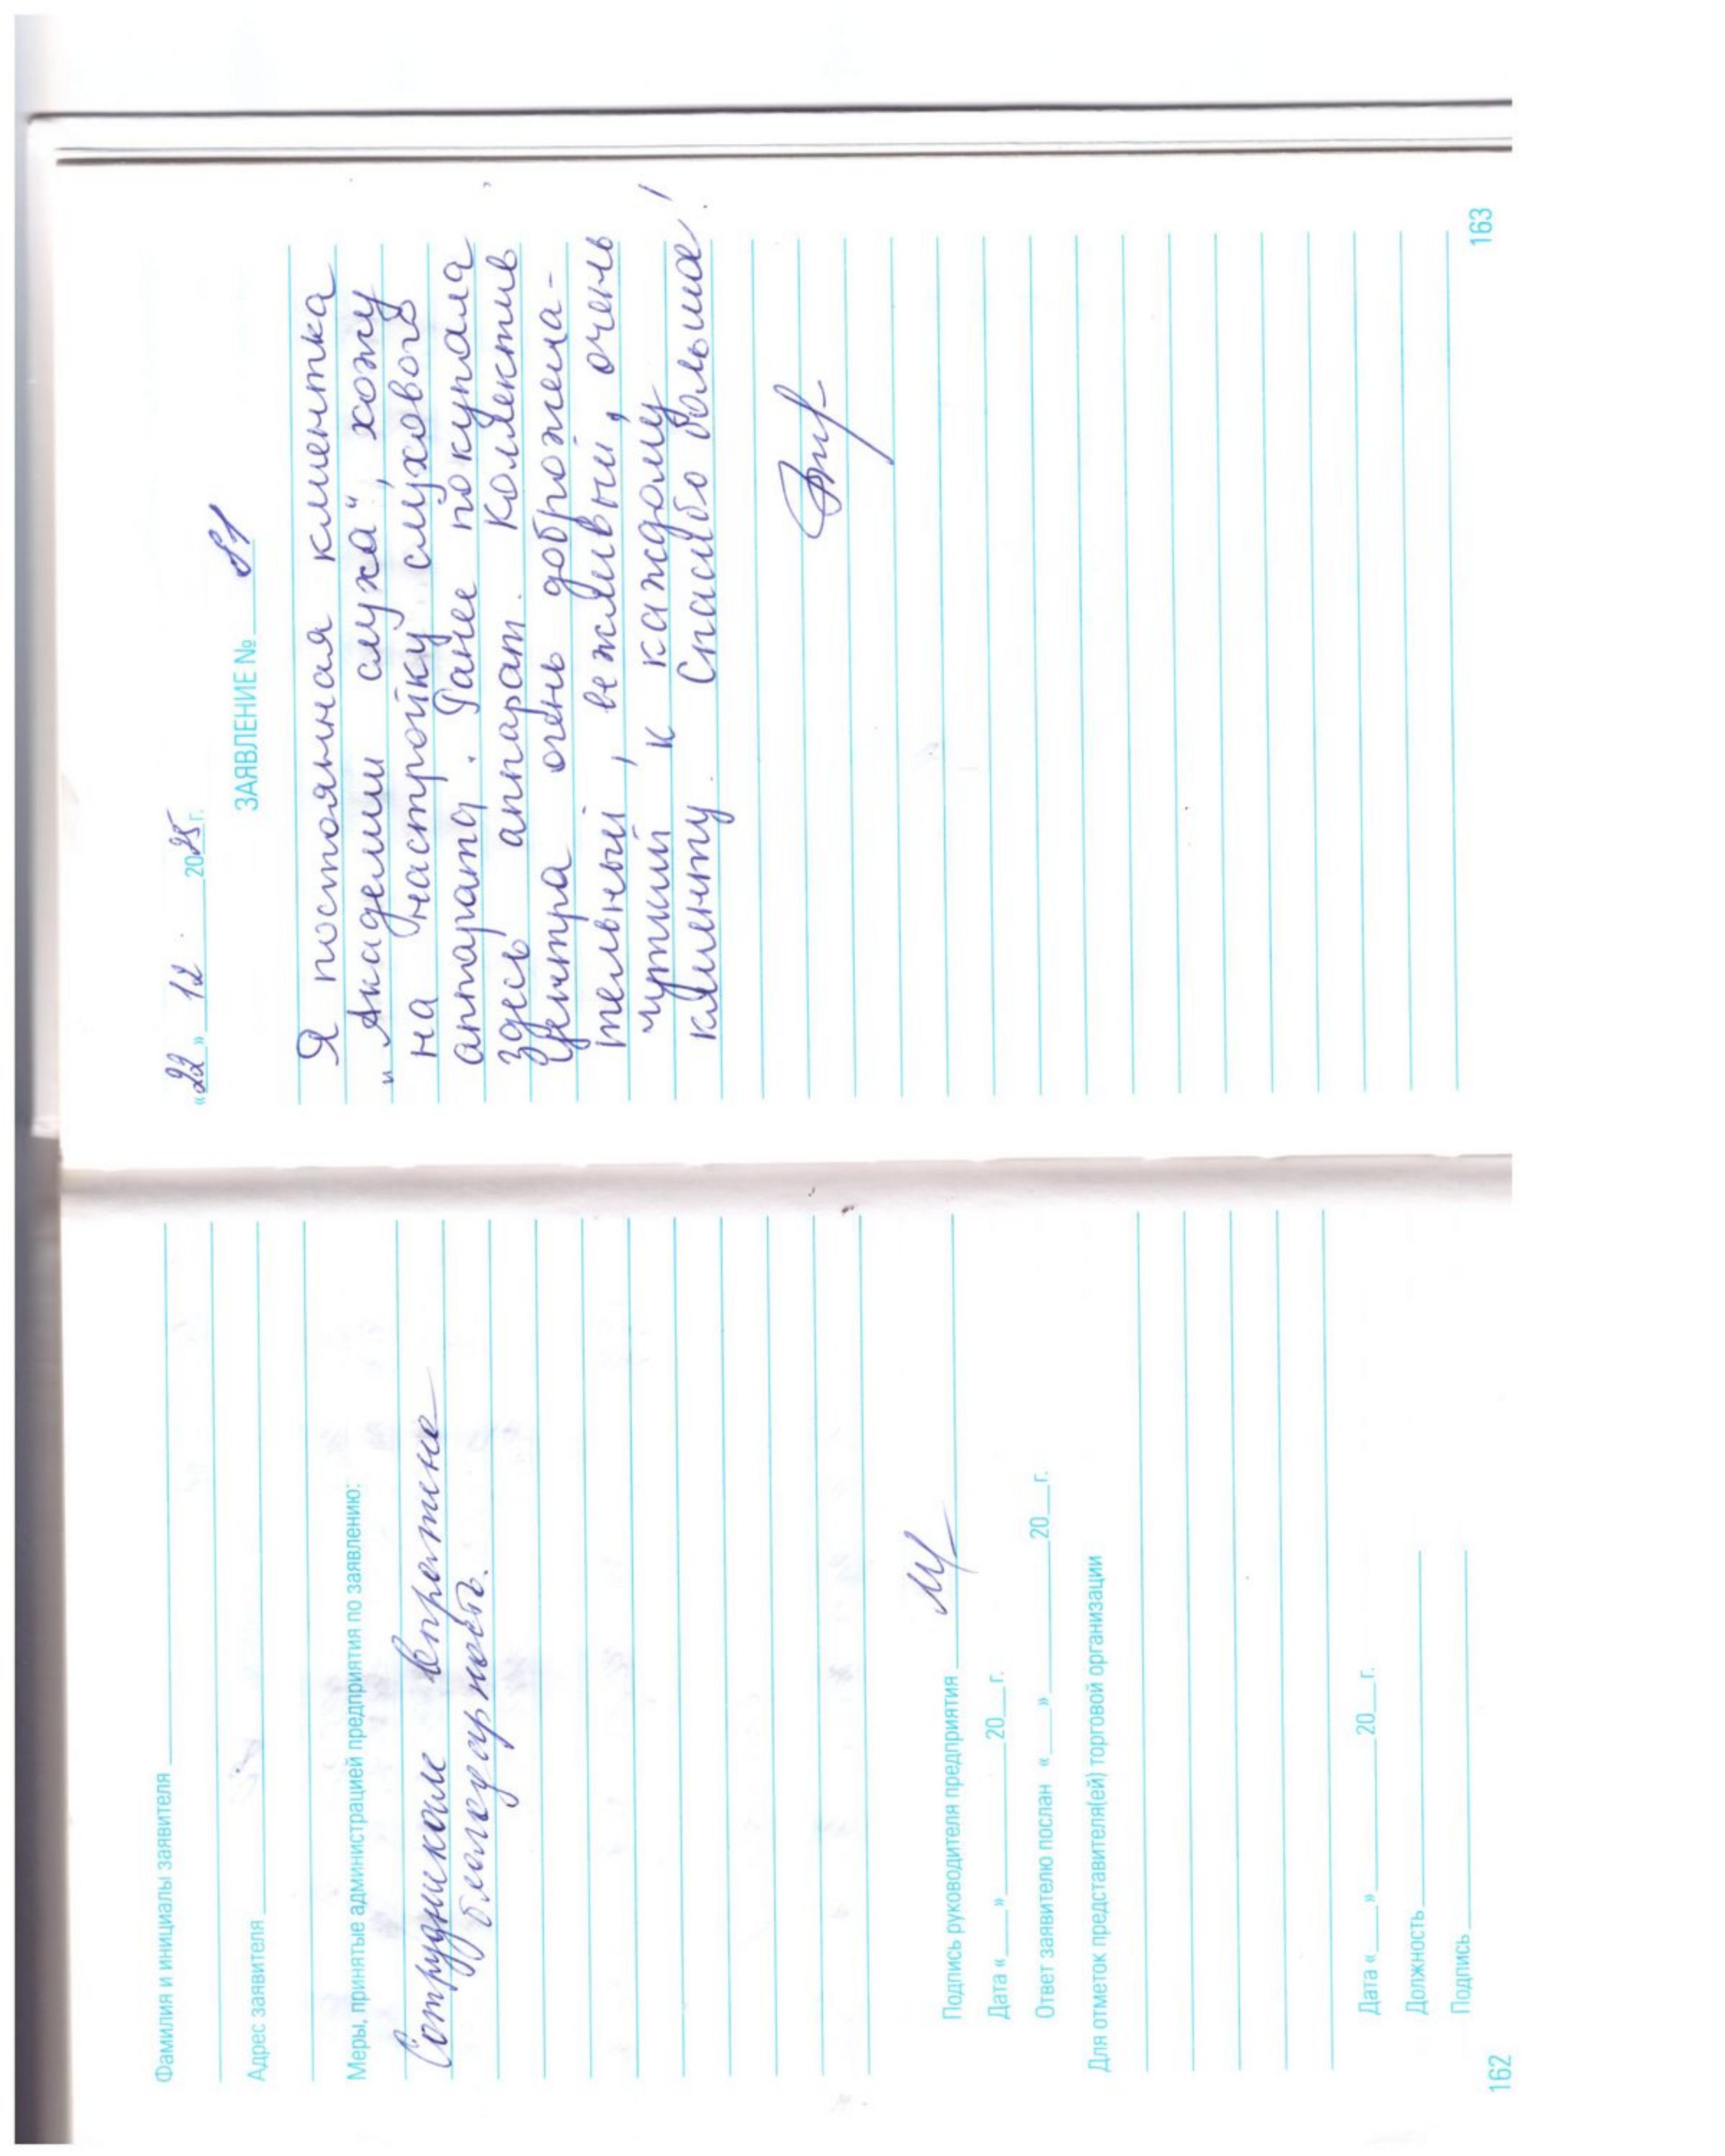 Фамилия и инициалы заявителя
Адрес заявителя
Меры, принятые администрацией предприятия по заявлению:
Сотрудникам выражена
благодарность.
Подпись руководителя предприятия
Дата «___»________20__г.
Ответ заявителю послан «___»________20__г.
Для отметок представителя(ей) торговой организации
Дата «___»________20__г.
Должность
Подпись
162
«22» 12 2025г.
ЗАЯВЛЕНИЕ № 81
Я постоянная клиентка
"Академии слуха", хожу
на настройку слухового
аппарата. Ранее покупала
здесь аппарат. Коллектив
центра очень доброжела-
тельный, вежливый, очень
чуткий к каждому
клиенту. Спасибо большое!
163